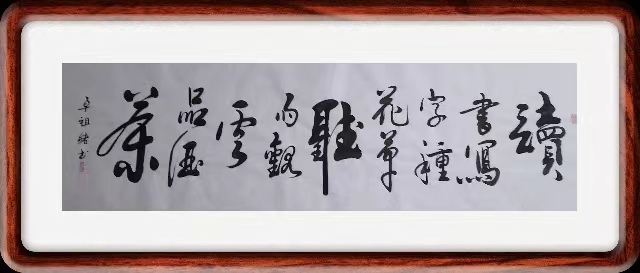 讀
書寫
字種
花草
聽
雨觀
雲
品酒
茶
卓祖緒书